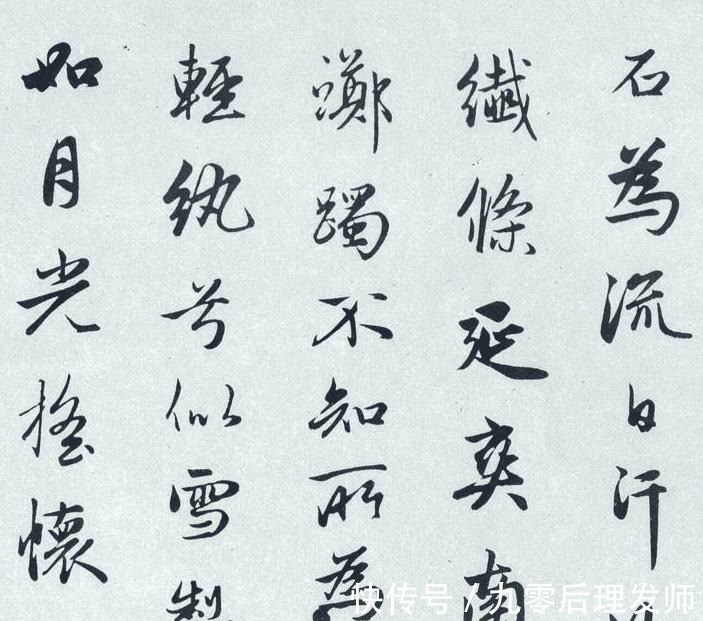 石為流日汗
纖條延爽南
躑躅不知所為
輕紈兮似雪製
如月光搖懷
快传号 / 九零后理发师